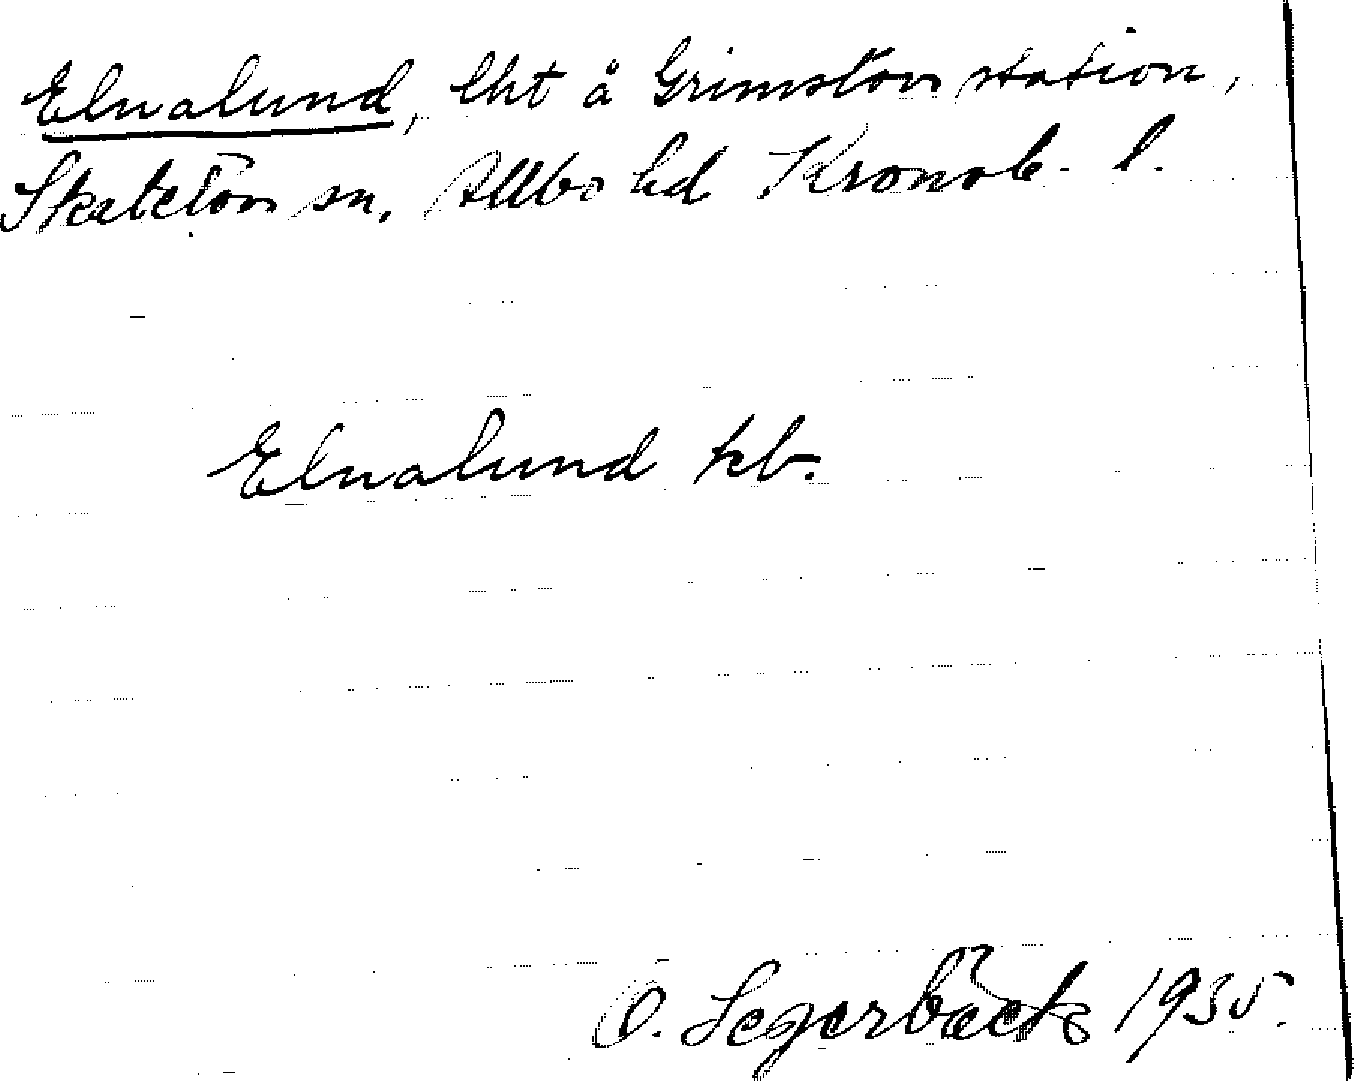 Elnalund, lht å Grimslöv station,
Skatelöv sn. Allbo hd Kronob. l.
Elnalund kb.
O. Segerbäck 1935.